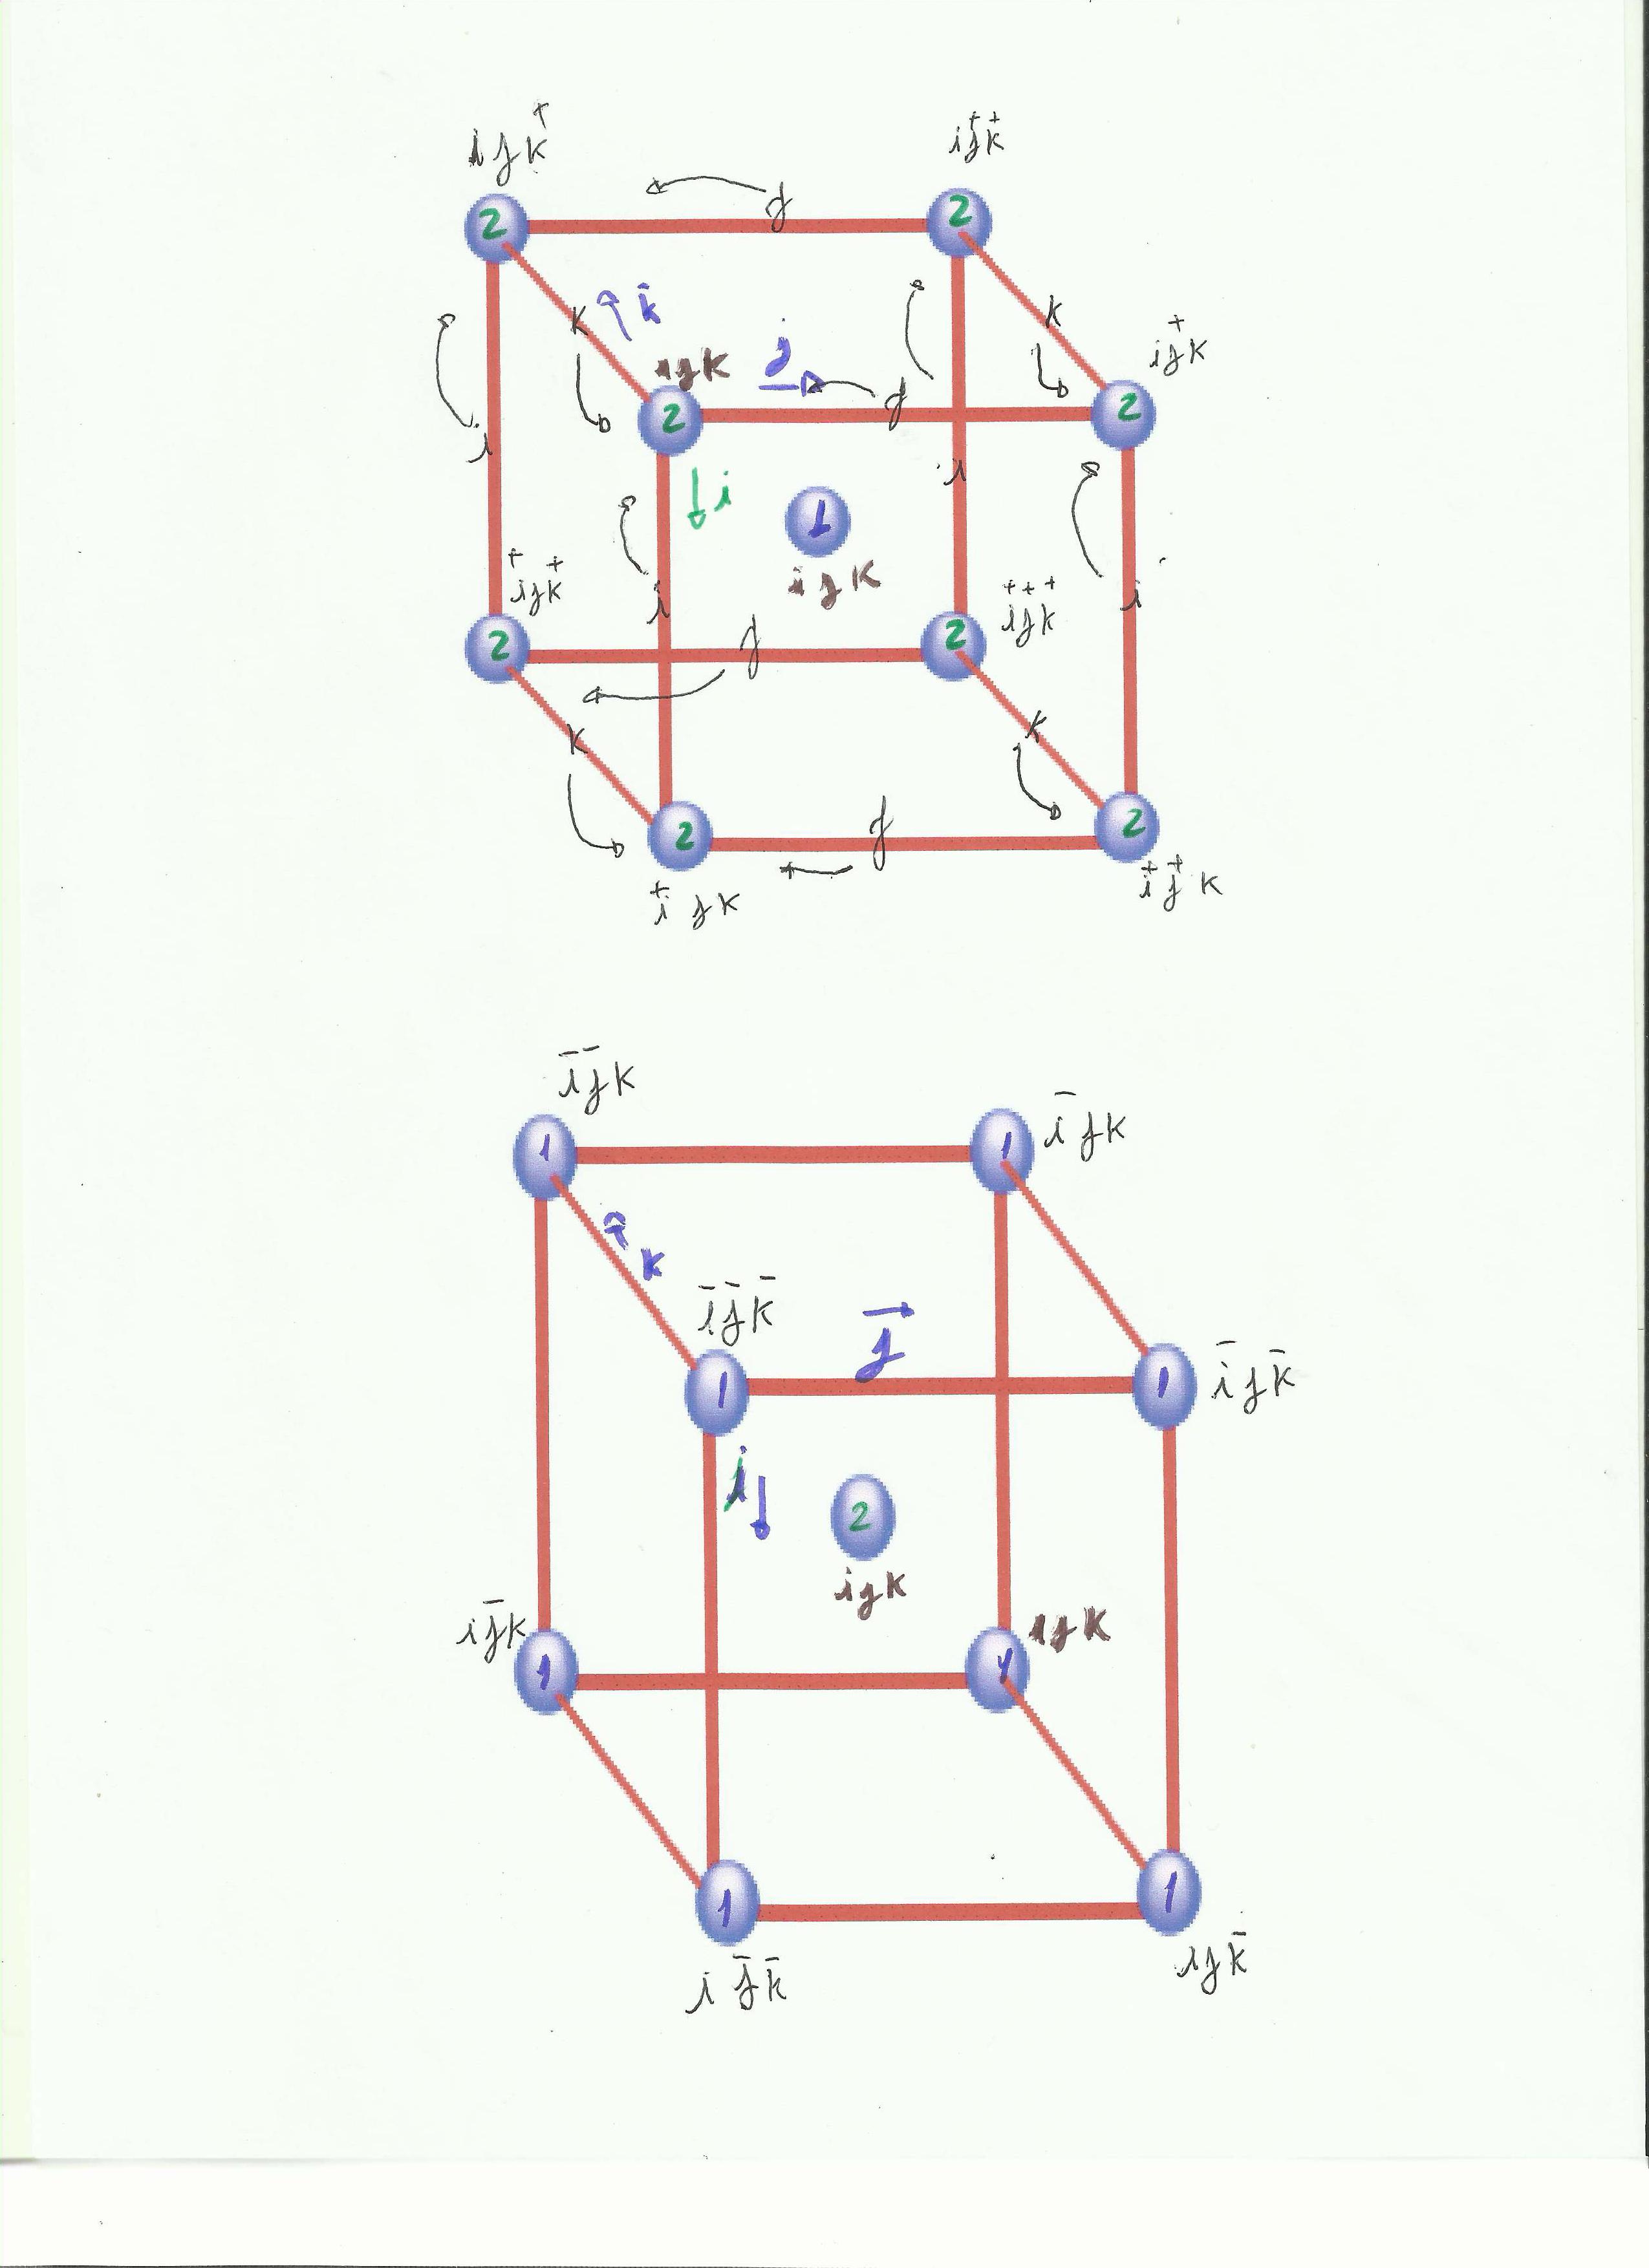 i j k⁺
i j⁺ k⁺
2
2
j
k̄
k
k
i j⁺ k
i j k
j
j
2
2
i
i
i
1
i j k
i
i
i⁺ j k⁺
i⁺ j⁺ k⁺
2
2
j
k
k
2
2
j
i⁺ j k
i⁺ j⁺ k
i̅ j̅ k
i̅ j k
1
1
k
i̅ j̅ k̅
j
1
1
i̅ j k̅
i
2
i j k
i j̅ k
i j k
1
1
1
1
i j̅ k̅
i j k̅